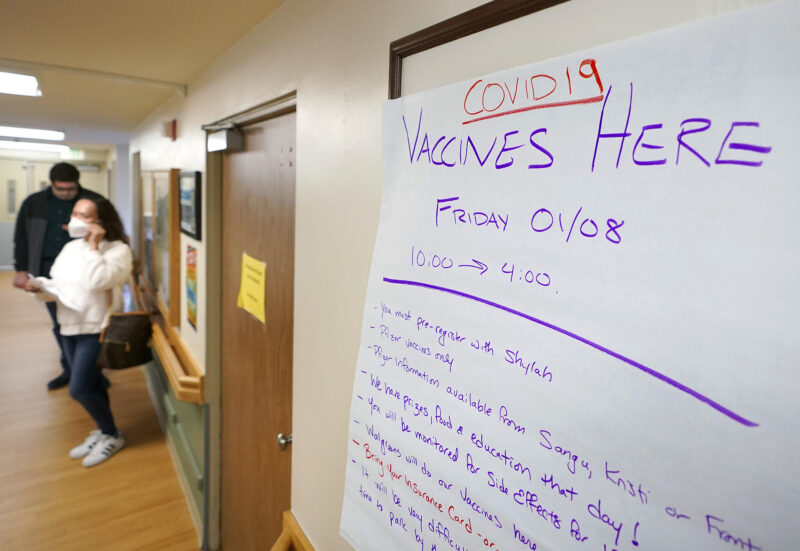 COVID19
VACCINES HERE
FRIDAY 01/08
10:00 → 4:00.
- You must pre-register with Shylah
- Pfizer vaccines only
- Pfizer Information available from Sangu, Kristi or Front
- We have prizes, food & education that day!
- You will be monitored for Side Effects for
- Walgreens will do our vaccines here
- Bring Your Insurance Card -or
- It will be very difficult
time to park by